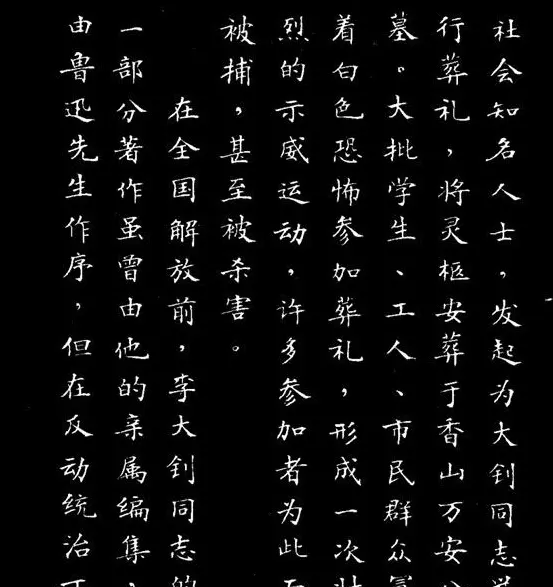 社会知名人士，发起为大钊同志
行葬礼，将灵柩安葬于香山万安
墓。大批学生、工人、市民群众
着白色恐怖参加葬礼，形成一次
烈的示威运动，许多参加者为此
被捕，甚至被杀害。
在全国解放前，李大钊同志的
一部分著作虽曾由他的亲属编集，
由鲁迅先生作序，但在反动统治